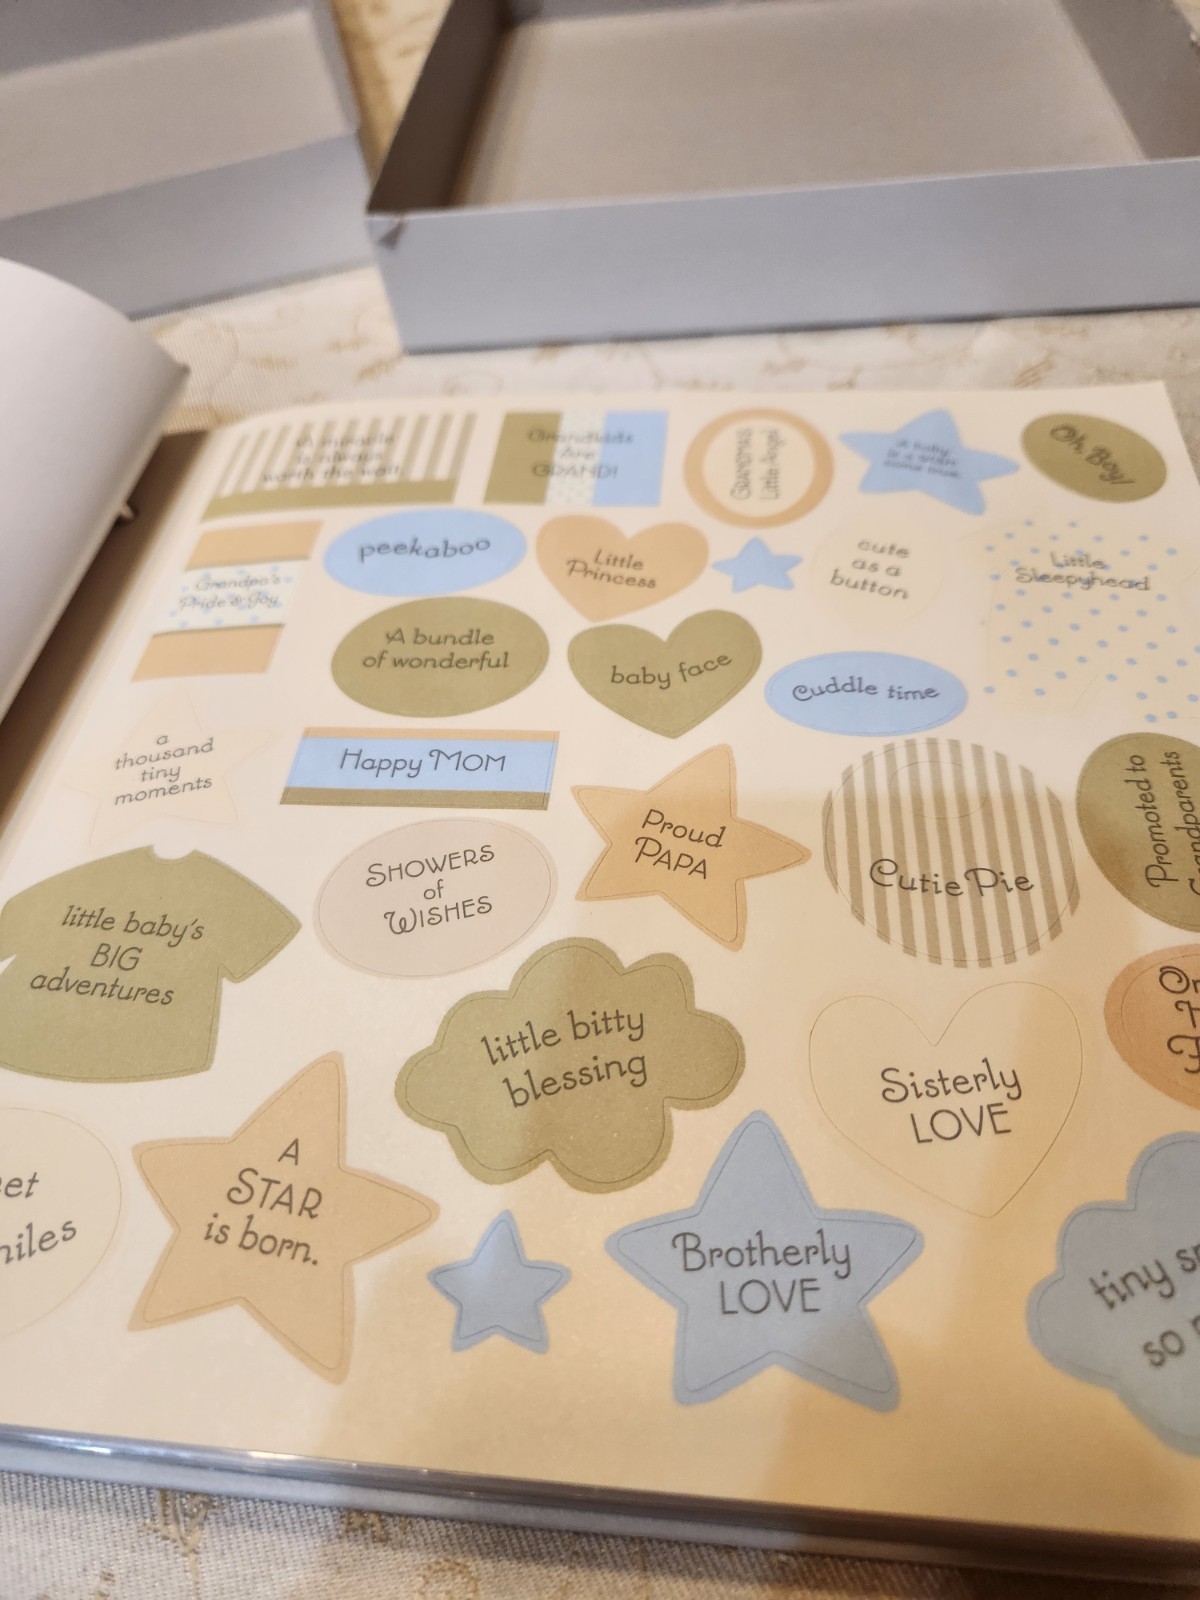 A miracle
is always
worth the wait.
Grandkids
Are
GRAND!
GRANDMA'S
Little Angel
A baby
is a
Oh Boy!
Grandpa's
Pride & Joy
peekaboo
Little
Princess
cute
as a
button
Little
Sleepyhead
A bundle
of wonderful
baby face
Cuddle time
a
thousand
tiny
moments
Happy MOM
Proud
PAPA
Cutie Pie
Promoted to
Grandparents
little baby's
BIG
adventures
SHOWERS
of
WISHES
little bitty
blessing
Sisterly
LOVE
A
STAR
is born.
Brotherly
LOVE
tiny
so